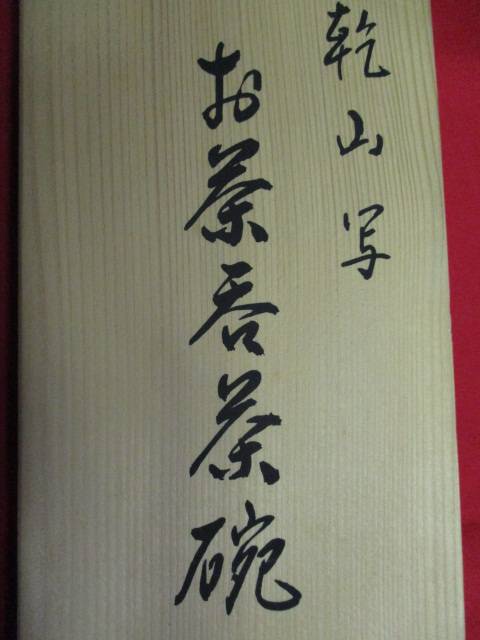 乾山写
お茶呑茶碗